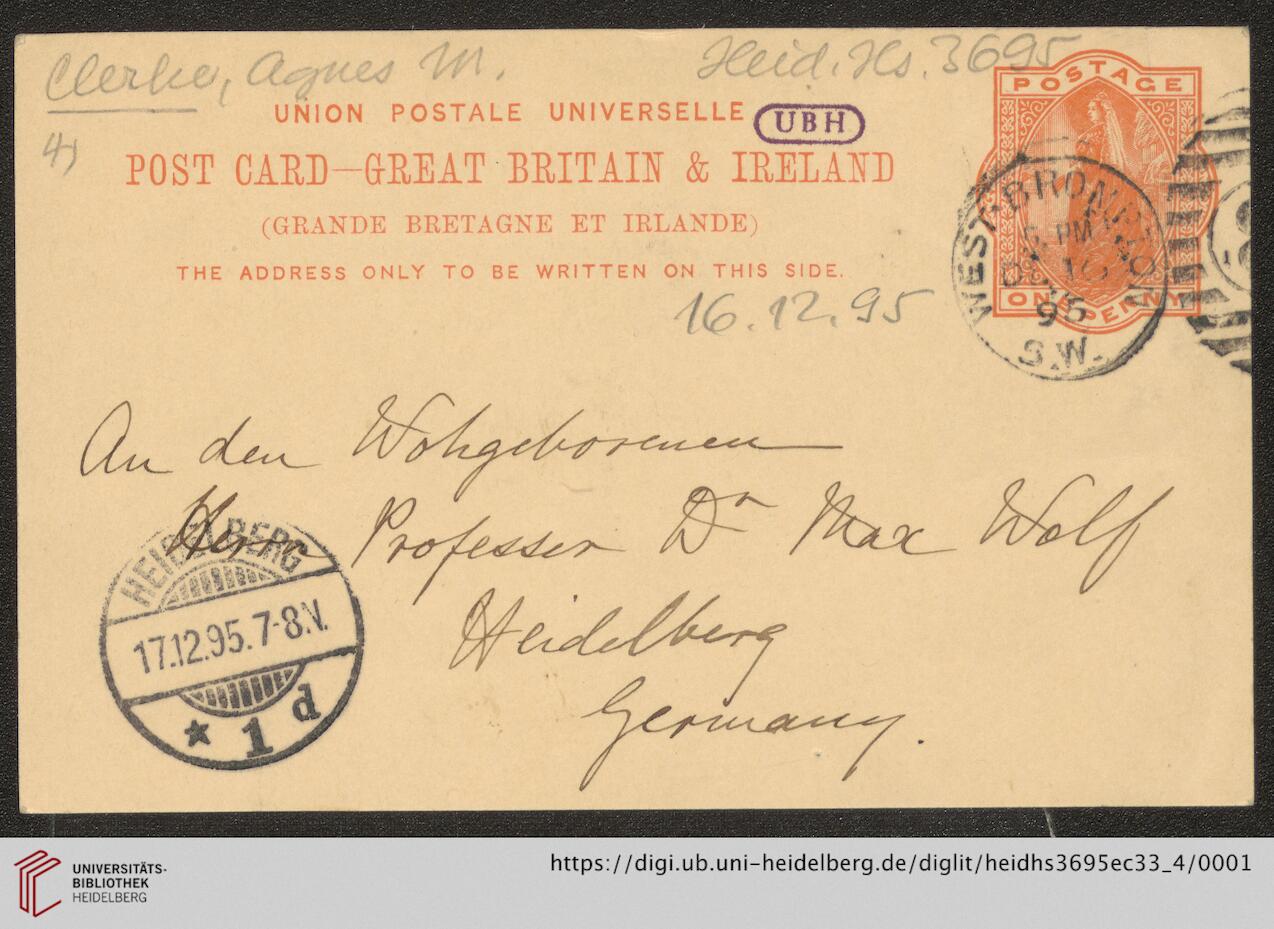 Clerke, Agnes M.
Heid. Hs. 3695
4)
UNION POSTALE UNIVERSELLE
UBH
POST CARD—GREAT BRITAIN & IRELAND
(GRANDE BRETAGNE ET IRLANDE)
THE ADDRESS ONLY TO BE WRITTEN ON THIS SIDE.
POSTAGE
ONE PENNY
WEST BROMPTON
PM
95
S.W.
16.12.95
An den Wohgeborenen
Herrn Professor Dr Max Wolf
Heidelberg
Germany.
HEIDELBERG
17.12.95.7-8.V.
* 1 d
UNIVERSITÄTS-
BIBLIOTHEK
HEIDELBERG
https://digi.ub.uni-heidelberg.de/diglit/heidhs3695ec33_4/0001